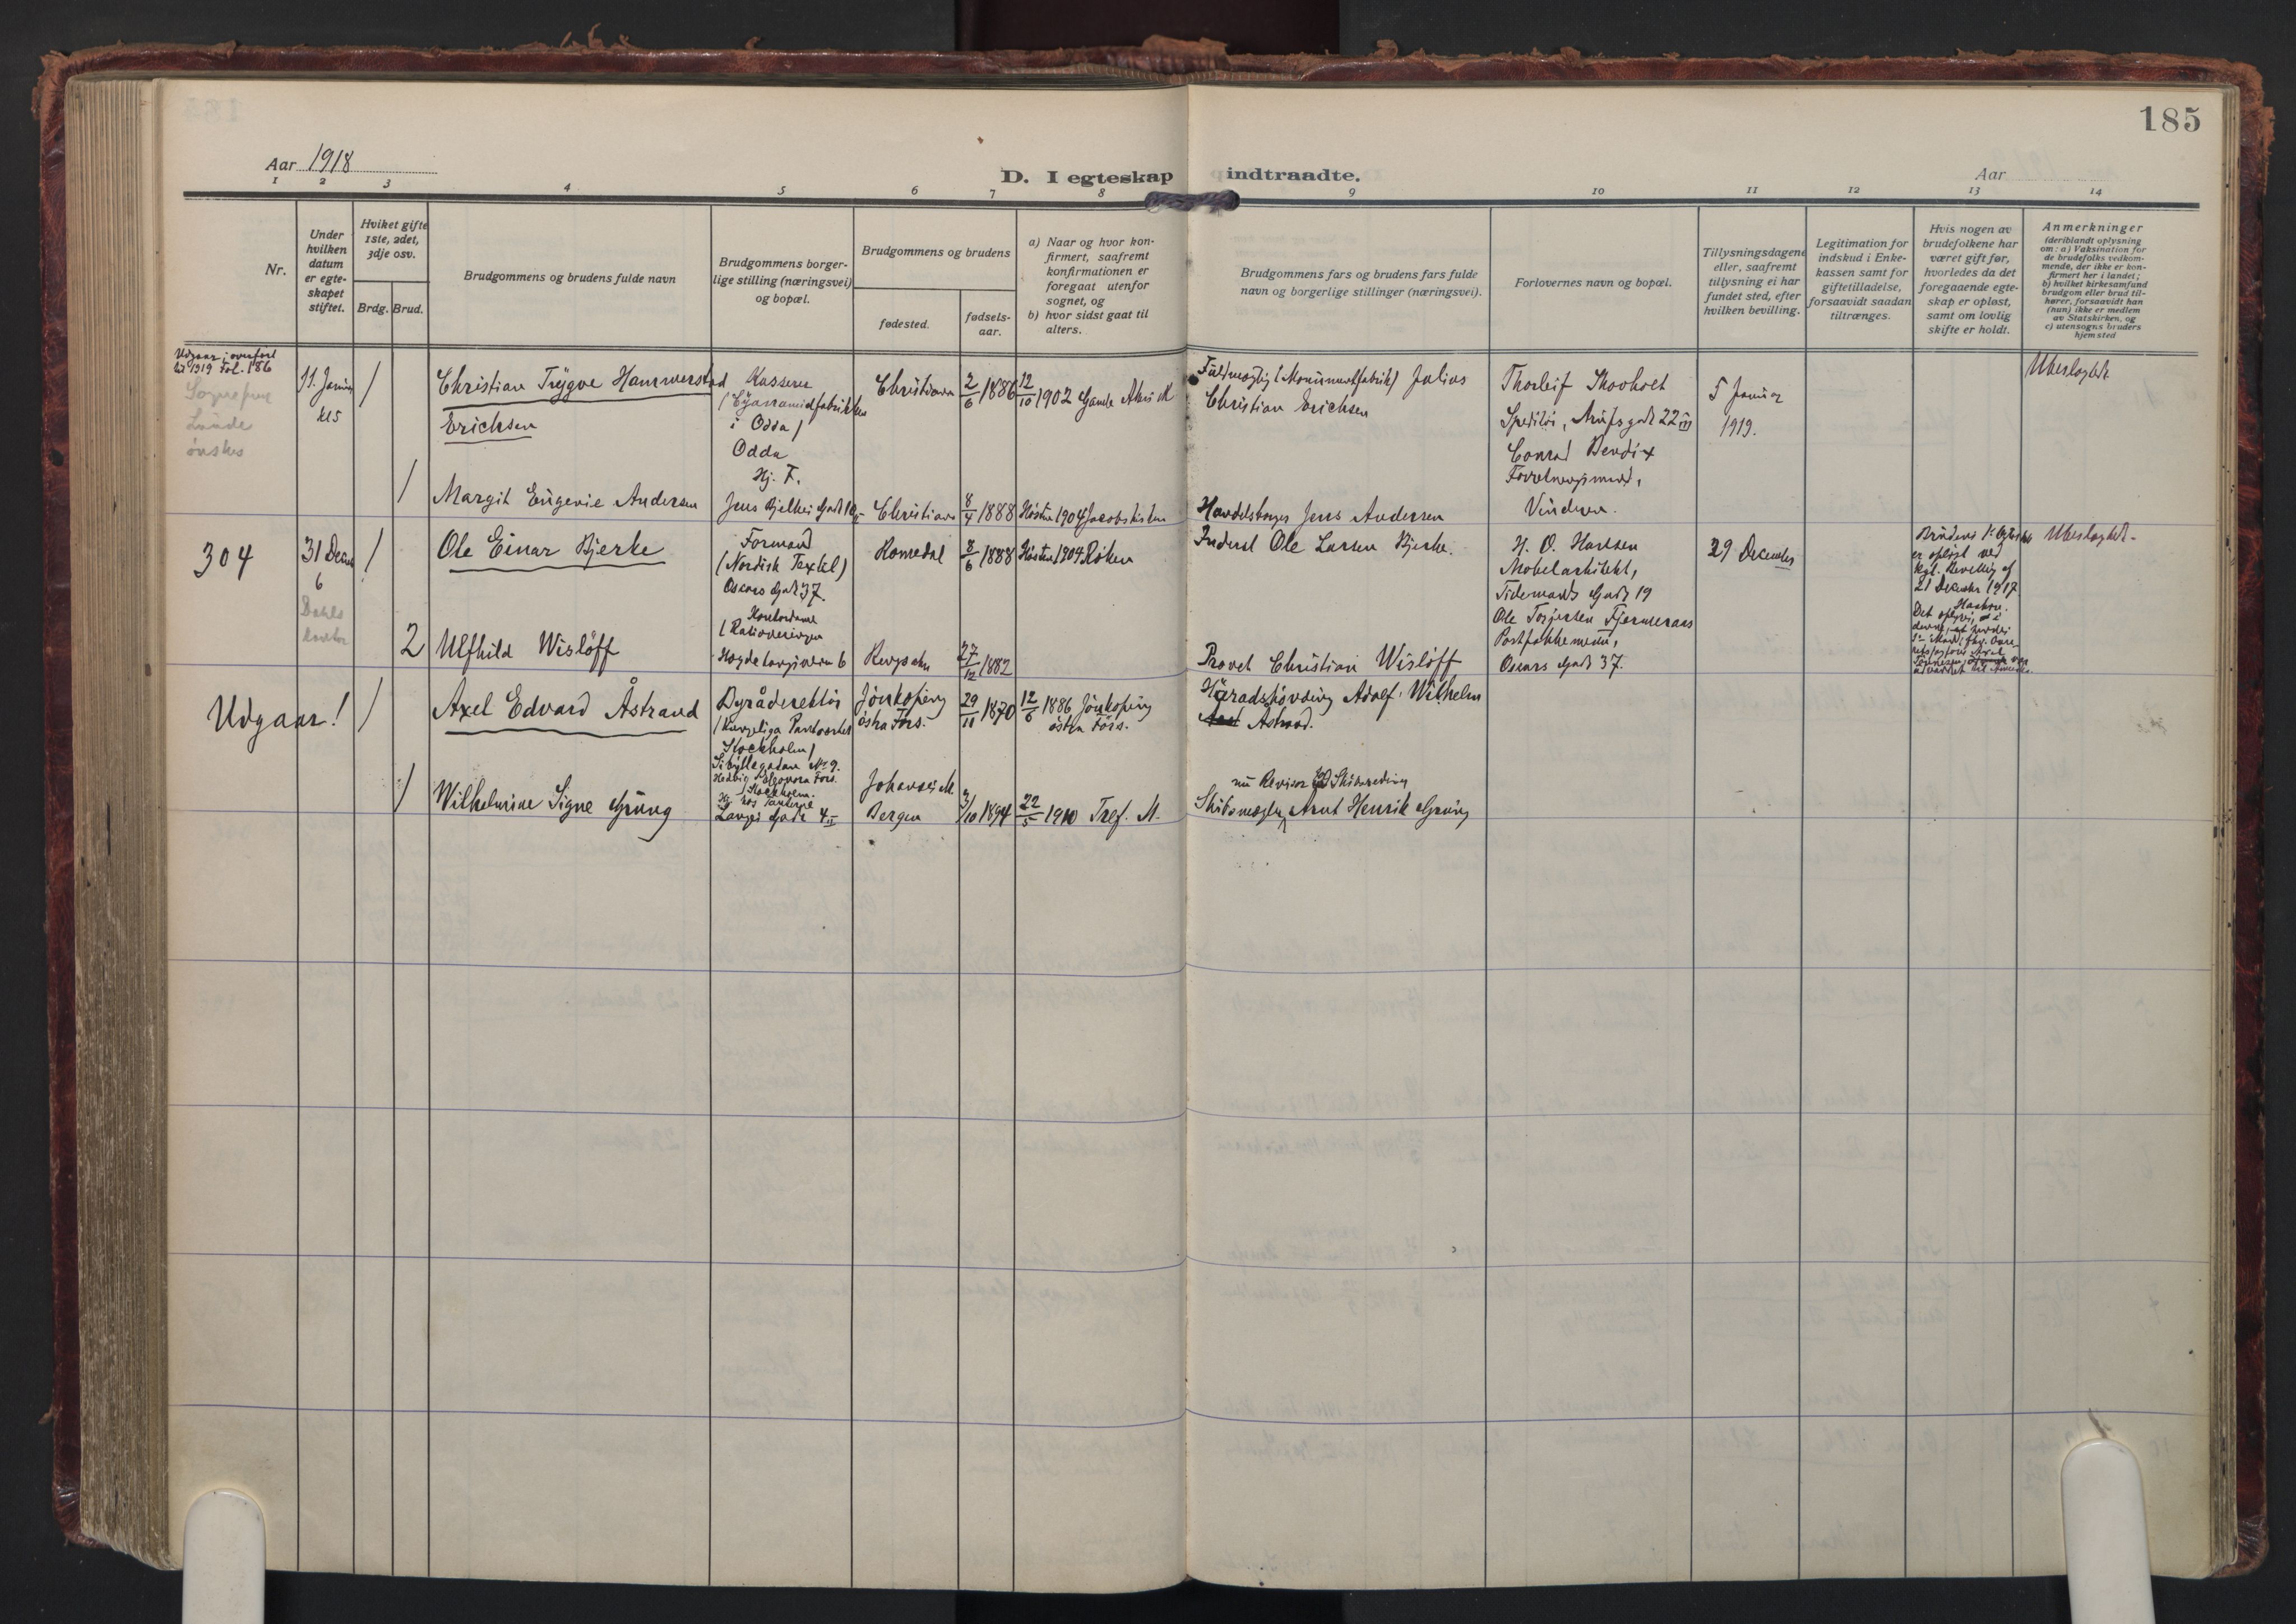 185
Aar 1918
D. I egteskap indtraadte.
Aar
1 2 3 4 5 6 7 8 9 10 11 12 13 14
Nr.
Under
hvilken
datum
er egte-
skapet
stiftet.
Hvilket gifte
1ste, 2det,
3dje osv.
Brdg. Brud.
Brudgommens og brudens fulde navn
Brudgommens borger-
lige stilling (næringsvei)
og bopæl.
Brudgommens og brudens
fødested.
fødsels-
aar.
a) Naar og hvor kon-
firmert, saafremt
konfirmationen er
foregaat utenfor
sognet, og
b) hvor sidst gaat til
alters.
Brudgommens fars og brudens fars fulde
navn og borgerlige stillinger (næringsvei).
Forlovernes navn og bopæl.
Tillysningsdagene
eller, saafremt
tillysning ei har
fundet sted, efter
hvilken bevilling.
Legitimation for
indskud i Enke-
kassen samt for
giftetilladelse,
forsaavidt saadan
tiltrænges.
Hvis nogen av
brudefolkene har
været gift før,
hvorledes da det
foregaaende egte-
skap er opløst,
samt om lovlig
skifte er holdt.
Anmerkninger
(deriblandt oplysning
om: a) Vaksination for
de brudefolks vedkom-
mende, der ikke er kon-
firmert her i landet;
b) hvilket kirkesamfund
brudgom eller brud til-
hører, forsaavidt han
(hun) ikke er medlem
av Statskirken, og
c) utensogns bruders
hjemsted
Udgaar; overført
til 1919 Fol. 186
Sogneprest
Lunde
ønskes
11. Januar
kl 5
1
Christian Trygve Hammerstad
Erichsen
Kasserer
(Cyanamidfabrikken
i Odda)
Odda
Hj. F.
Christiania
2/6 1886
12/10 1902 Gamle Akers K
Fuldmægtig (Monumentfabrik) Julius
Christian Erichsen
Thorleif Skovholt
Speditør, Arupsgade 22 III
Conrad Bendix
Forretningsmand,
Vinderen.
5 Januar
1919.
Ubeslægtet
1
Margit Eugenie Andersen
Jens Bjelkes Gade
Christiania
8/4 1888
Høsten 1904 Jacobskirken
Handelsborger Jens Andersen
304
31 Decem
6
Dahls
Kontor
1
Ole Einar Bjerke
Formand
(Nordisk Textil)
Oscars Gade 37.
Romedal
8/6 1888
Høsten 1904 Røken
Inderst Ole Larsen Bjerke.
H. O. Hansen
Møbelarkitekt,
Tidemands Gade 19
Ole Torjersen Fjermeraas
Postpakkemester,
Oscars Gade 37.
29 December
Brudens 1ste Egteskab
er opløst ved
kgl. Bevilling af
21 December 1917
Ubeslægtet
2
Ulfhild Wisløff
Kontordame
(Rationeringen
Hegdehaugsveien 6
27/12 1882
Provst Christian Wisløff
Udgaar!
1
Axel Edvard Åstrand
Byrådirektør
(Kungeliga Patentverket
Stockholm)
Sibyllegatan No 9.
Hedvig Eleonora Førs.
Stockholm.
Jönköping
östra Førs.
29/11 1870
12/6 1886 Jönköping
östra Förs.
Häradshövding Adolf Wilhelm
Åstrand.
1
Wilhelmine Signe Grüng
Langes Gade 4 II
Johanneskk
Bergen
3/10 1894
22/5 1910 Tref. M.
nu Revisor Skibsrederi
Skibsmægler Arnt Henrik Grüng